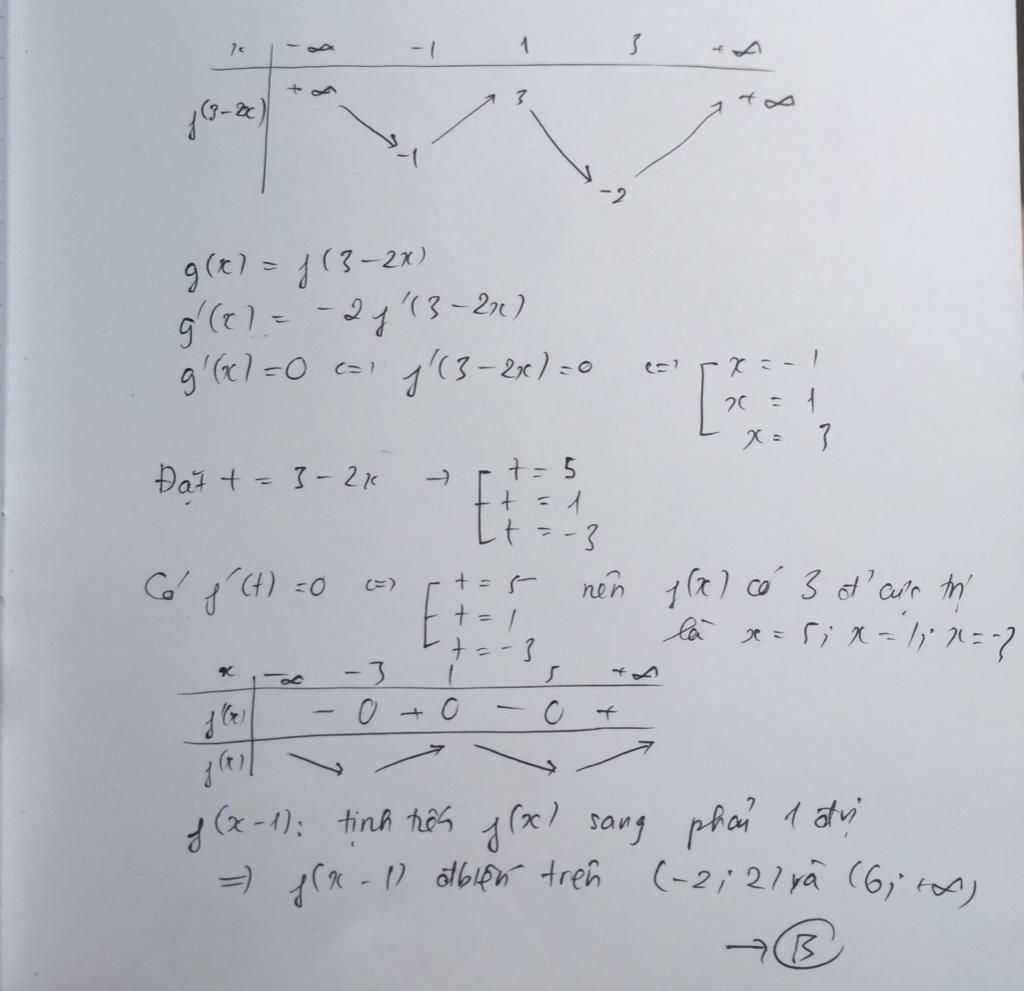 x -∞ -1 1 3 +∞
f(3-2x) +∞ -1 3 -2 +∞
g(x) = f(3-2x)
g'(x) = -2f'(3-2x)
g'(x) = 0 <=> f'(3-2x) = 0 <=> [ x = -1
x = 1
x = 3
Đặt t = 3 - 2x → [ t = 5
t = 1
t = -3
Có f'(t) = 0 <=> [ t = 5 nên f(x) có 3 đ' cực trị
t = 1 là x = 5; x = 1; x = -3
t = -3
x -∞ -3 1 5 +∞
f'(x) - 0 + 0 - 0 +
f(x)
f(x-1): tịnh tiến f(x) sang phải 1 đvị
=> f(x-1) đbiến trên (-2; 2) và (6; +∞)
→ B